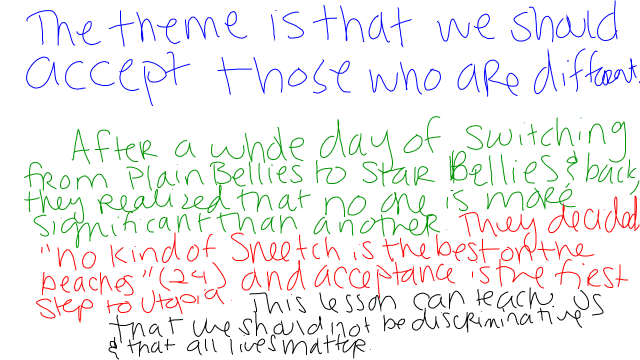 The theme is that we should
accept those who are different.
After a whole day of switching
from Plain Bellies to Star Bellies & back,
they realized that no one is more
significant than another. They decided
"no kind of Sneetch is the best on the
beaches" (24) and acceptance is the first
step to utopia. This lesson can teach us
that we should not be discriminative
& that all lives matter.